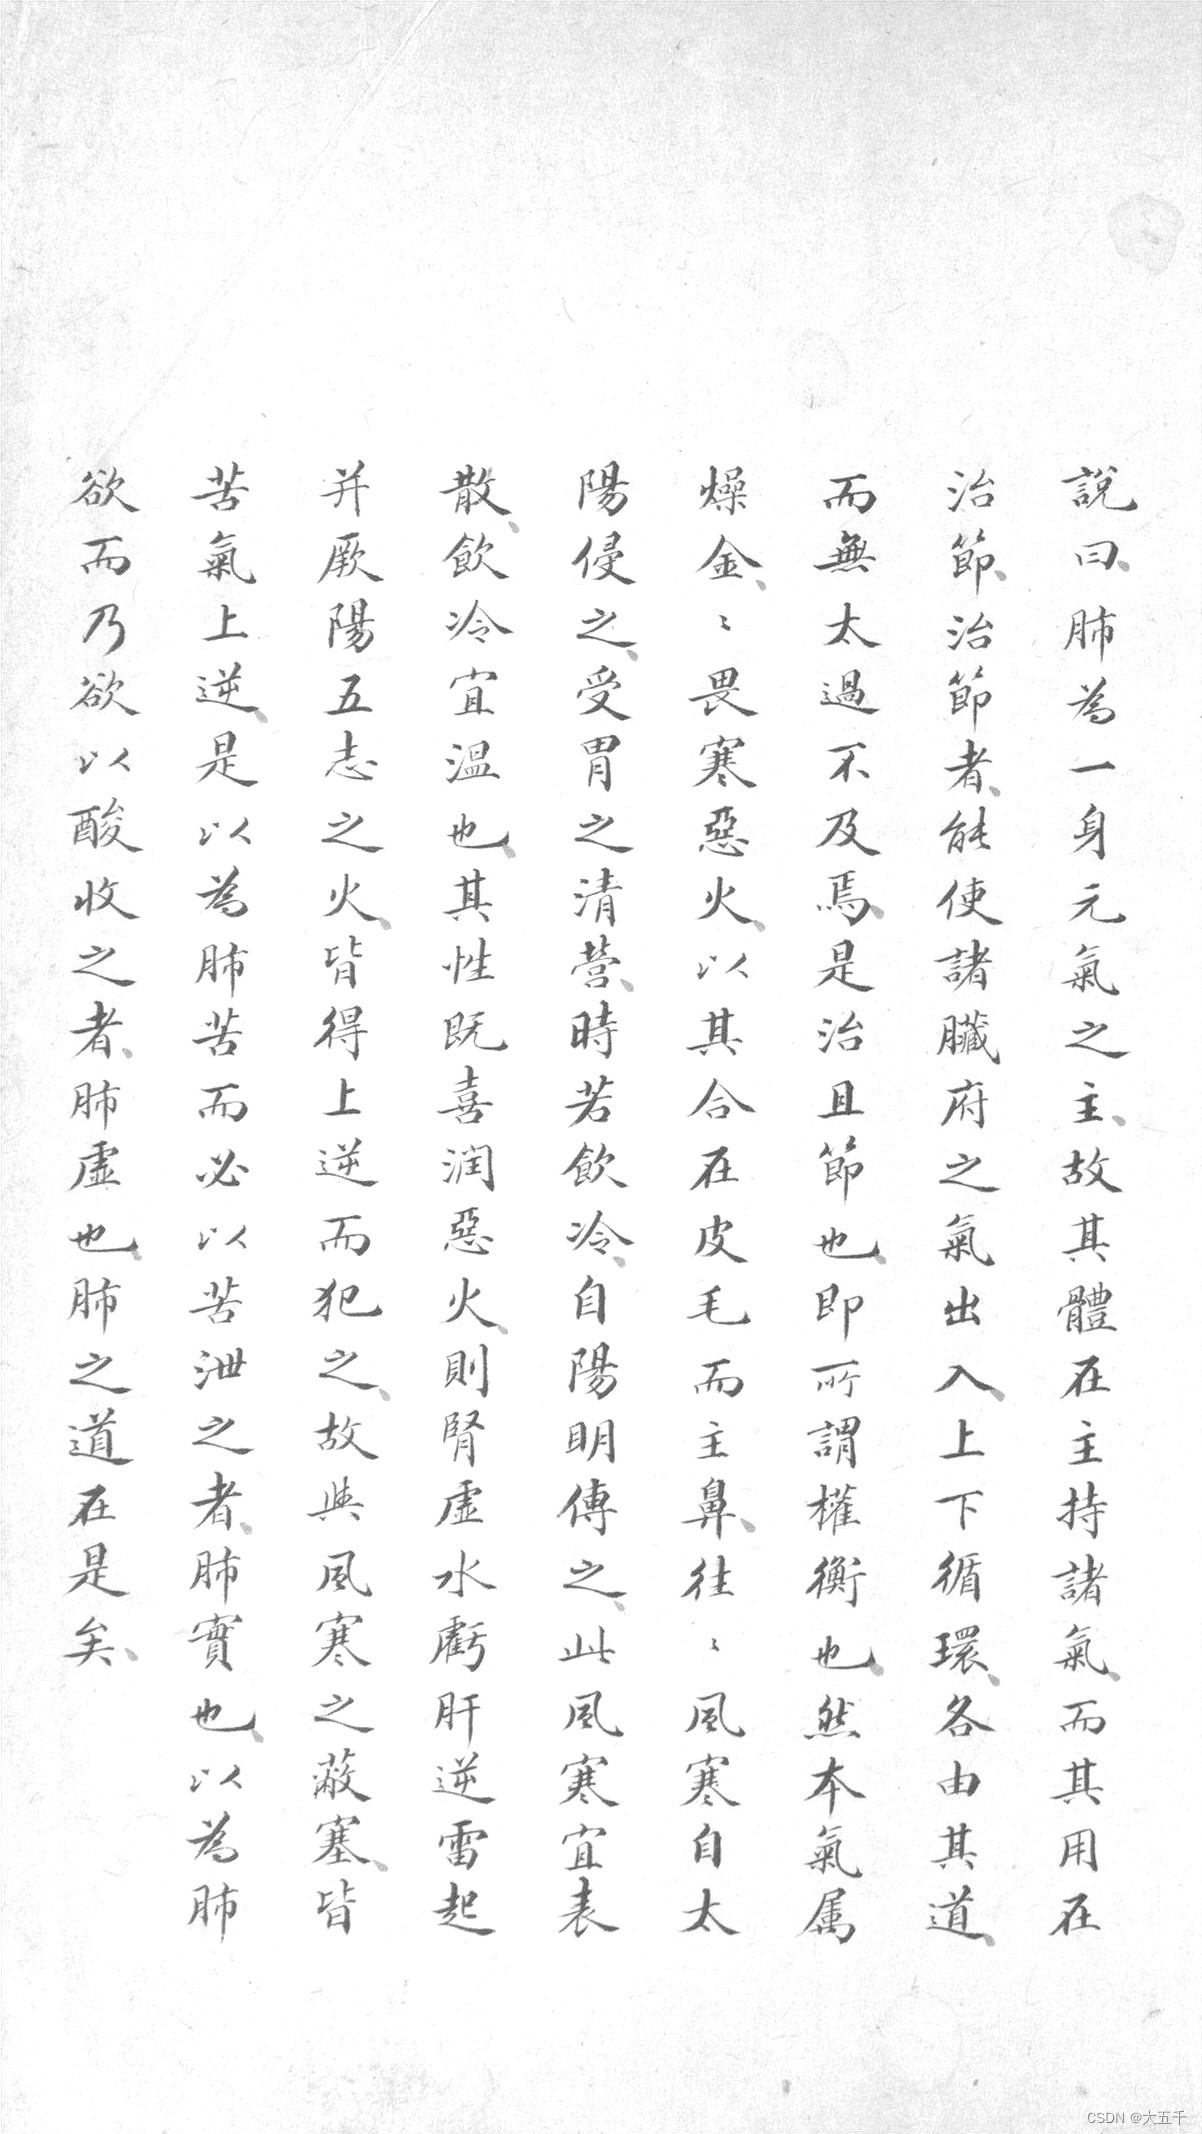 說曰、肺為一身元氣之主、故其體在主持諸氣、而其用在
治節、治節者、能使諸臟府之氣出入、上下循環、各由其道、
而無太過不及焉、是治且節也、即所謂權衡也、然本氣属
燥金、〻畏寒惡火、以其合在皮毛而主鼻、往〻風寒自太
陽侵之、受胃之清營、時若飲冷、自陽明傳之、此風寒宜表
散、飲冷宜温也、其性既喜润惡火、則腎虚水虧肝逆雷起
并厥陽五志之火、皆得上逆而犯之、故與風寒之蔽塞、皆
苦氣上逆、是以為肺苦而必以苦泄之者、肺實也、以為肺
欲而乃欲以酸收之者、肺虚也、肺之道在是矣、
CSDN @大五千